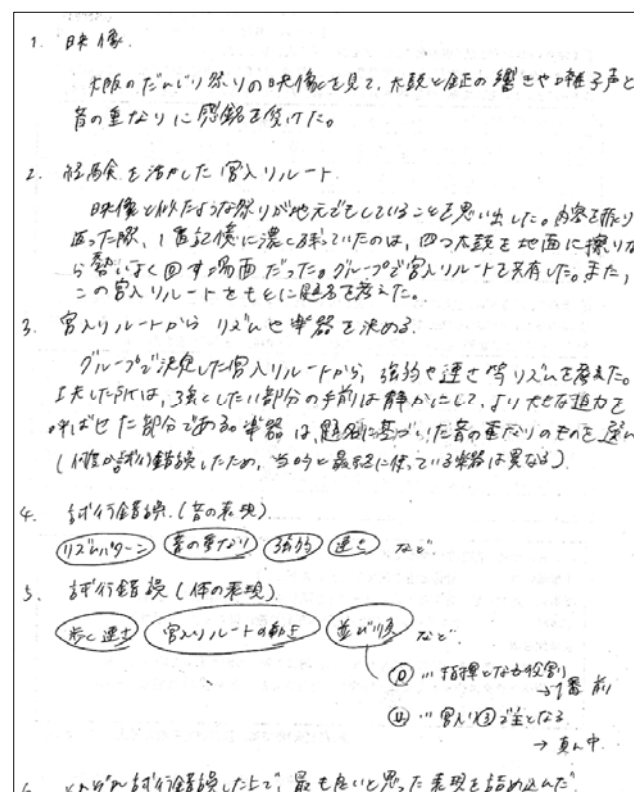 1. 映像.
大阪のだんじり祭りの映像を見て、太鼓と鉦の響きや囃子声と
音の重なりに感銘を受けた。
2. 経験を活かした宮入りルート
映像と似たような祭りが地元でもしていることを思い出した。内容を振り
返った際、1番記憶に濃く残っていたのは、四つ太鼓を地面に擦りな
ら勢いよく回す場面だった。グループで宮入りルートを共有した。また、
この宮入りルートをもとに題名を考えた。
3. 宮入りルートから リズムや楽器を決める.
グループで決定した宮入りルートから、強弱や速さ等リズムを考えた。
工夫した所は、強くしたい部分の手前は静かにして、より大きな迫力を
呼ばせた部分である。楽器は、題名に基づいた音の重なりのものを選ん
(何度か試行錯誤したため、当時と最終に使っている楽器は異なる).
4. 試行錯誤.(音の表現)
リズムパターン 音の重なり 強弱 速さ など
5. 試行錯誤(体の表現).
歩く速さ 宮入りルートの動き 並び順 など.
… 指揮となる役割
→1番 前
… 宮入り③で主となる
→ 真ん中.
6. それぞれ試行錯誤した上で、最も良いと思った表現を詰め込んだ.